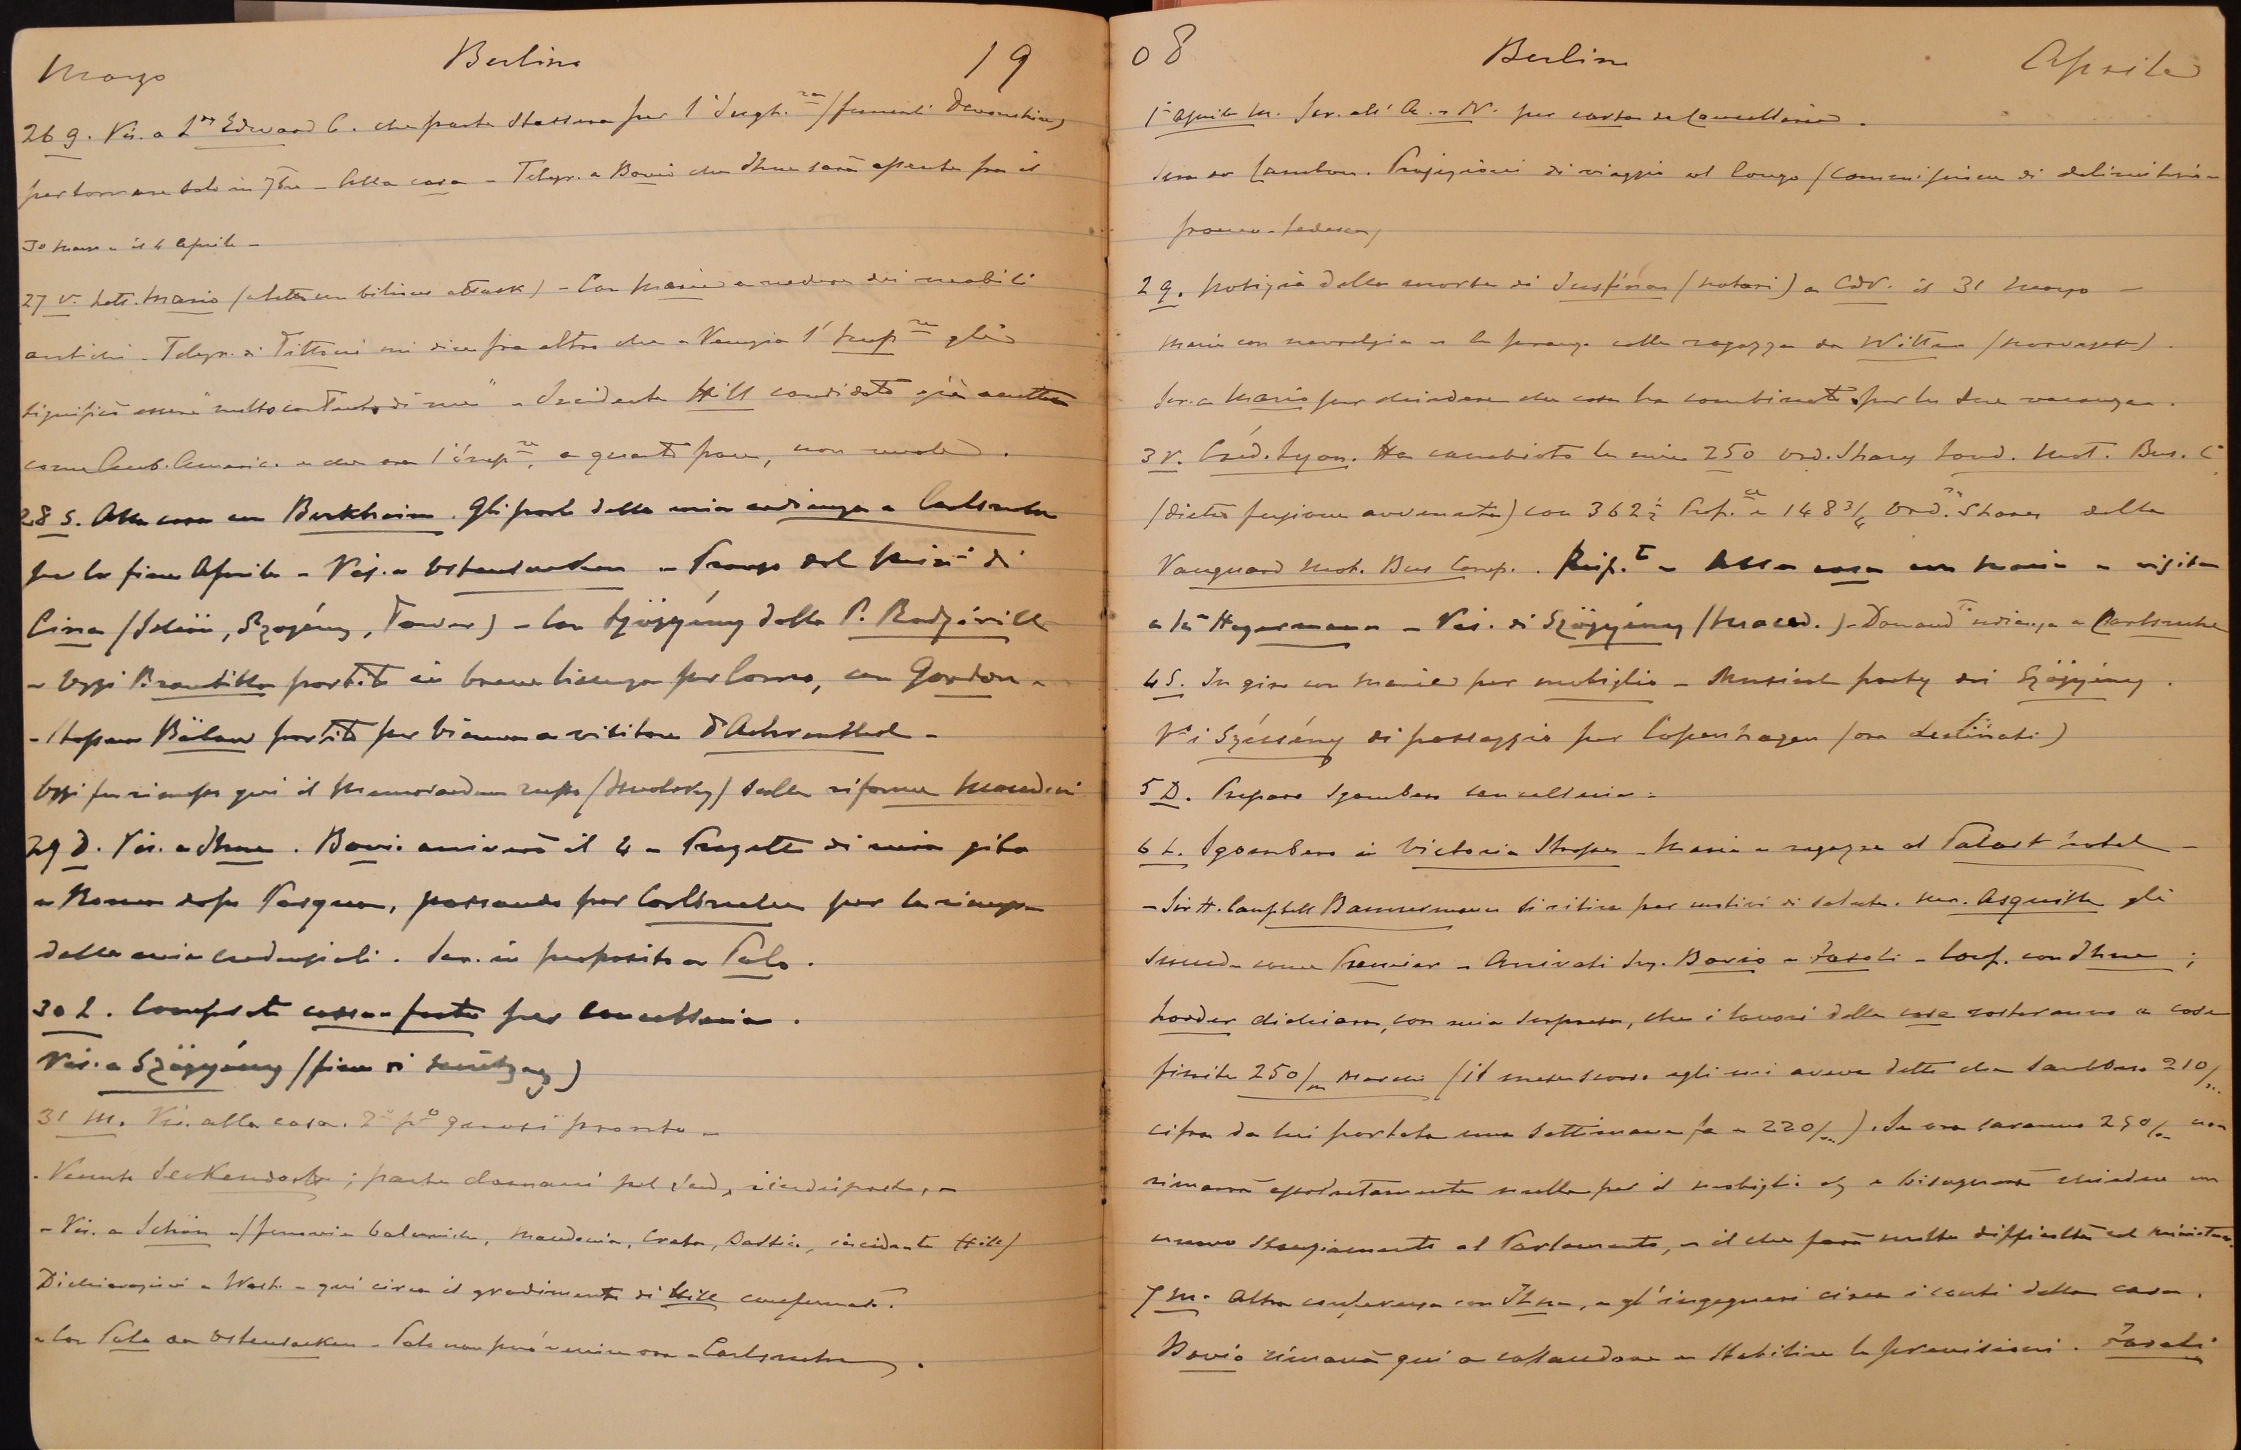 Marzo Berlino 19
26 g. Vis. a Edward C. che parte stassera per l'Ingh.ra (funerali Devonshire)
per tornare solo in 7bre - Alla casa - Telegr. a Bovio che Ihne sarà assente fra il
30 Marzo e il 4 Aprile -
27 v. Lett. Mario (bilious attack) - Con Maria a vedere dei mobili
antichi - Telegr. di Tittoni mi dice fra altro che a Venezia l'Imp.re gli
significò essere "molto contento di me" - Incidente Hill candidato già
come Amb. Americ. e che ora l'imp.re, a quanto pare, non vuole.
28 S. Alla casa con Berkheim. Gli parlo della mia udienza a Carlsruhe
per la fine Aprile - Vis. a Ostensacken - Pranzo dal Min. di
Cina (Schön, Szögyény, Tower) - Con Szögyény dalla P. Radziwill
- Oggi Brambilla partito in breve licenza per Como, con Gordon -
- Stassera Bülow partito per Vienna a visitare d'Aehrenthal -
Oggi fu rimesso qui il Memorandum russo (Iswolsky) sulle riforme Maced.ni
29 D. Vis. a Ihne. Bovio arriverà il 4 - Progetto di mia gita
a Roma dopo Pasqua, passando per Carlsruhe per la rimessa
delle mie credenziali. Scr. in proposito a Calo.
30 L. Comprato cassa-forte per Cancelleria.
Vis. a Szögyény (fine di)
31 M. Vis. alla casa. 2° p° quasi pronto -
- Venuto Seckendorff; parte domani pel Sud, indisposto -
- Vis. a Schön (ferrovie balcaniche, Macedonia, Creta, Baltico, incidente Hill)
Dichiarazioni a Wash. e qui circa il gradimento di Hill confermato.
- Con Calo da Ostensacken - Calo non può venire ora a Carlsruhe.
08 Berlino Aprile
1° Aprile M. Scr. all' A. e N. per cassa di Cancelleria.
Sera da Cambon. Projezioni di viaggio al Congo (commissione di delimitaz.e
franco-tedesca)
2 g. Notizia della morte di (notari) a CdV. il 31 Marzo -
Maria con nevralgia e la pranzo colle ragazze da (norvegese).
Scr. a Mario per chiedere che cosa ha combinato per le sue vacanze.
3 V. Créd. Lyon. Ha cambiato le mie 250 Ord. Shares Lond. Mot. Bus. C°
(dietro fusione avvenuta) con 362½ Pref.ce e 148¾ Ord. Shares della
Vanguard Mot. Bus Comp. . Risp.to - Alla casa con Maria e visita
a Hegermann - Vis. di Szögyény (Maced.) - Domand. udienza a Carlsruhe
4 S. In giro con Maria per mobiglio - Musical party dai Szögyény.
V° i Széchény di passaggio per Copenhagen (ora destinati)
5 D. Preparo sgombero cancelleria -
6 L. Sgombero in Victoria Strasse - Maria e ragazze al Palast hôtel -
- Sir H. Campbell Bannerman si ritira per motivi di salute. Mr. Asquith gli
succede come Premier - Arrivati Ing. Bovio e Fasoli - Conf. con Ihne;
dichiara, con mia sorpresa, che i lavori della casa costeranno a cose
finite 250/m marchi (il mese scorso egli mi aveva detto che sarebbero 210/m
cifra da lui portata una settimana fa a 220/m). Se ora saranno 250/m non
rimarrà assolutamente nulla per il mobiglio e bisognerà chiedere un
nuovo stanziamento al Parlamento, il che farà molta difficoltà al Ministero.
7 M. Altra conferenza con Ihne, e gl'ingegneri circa i conti della casa.
Bovio rimarrà qui a collaudare e stabilire le previsioni. Fasoli